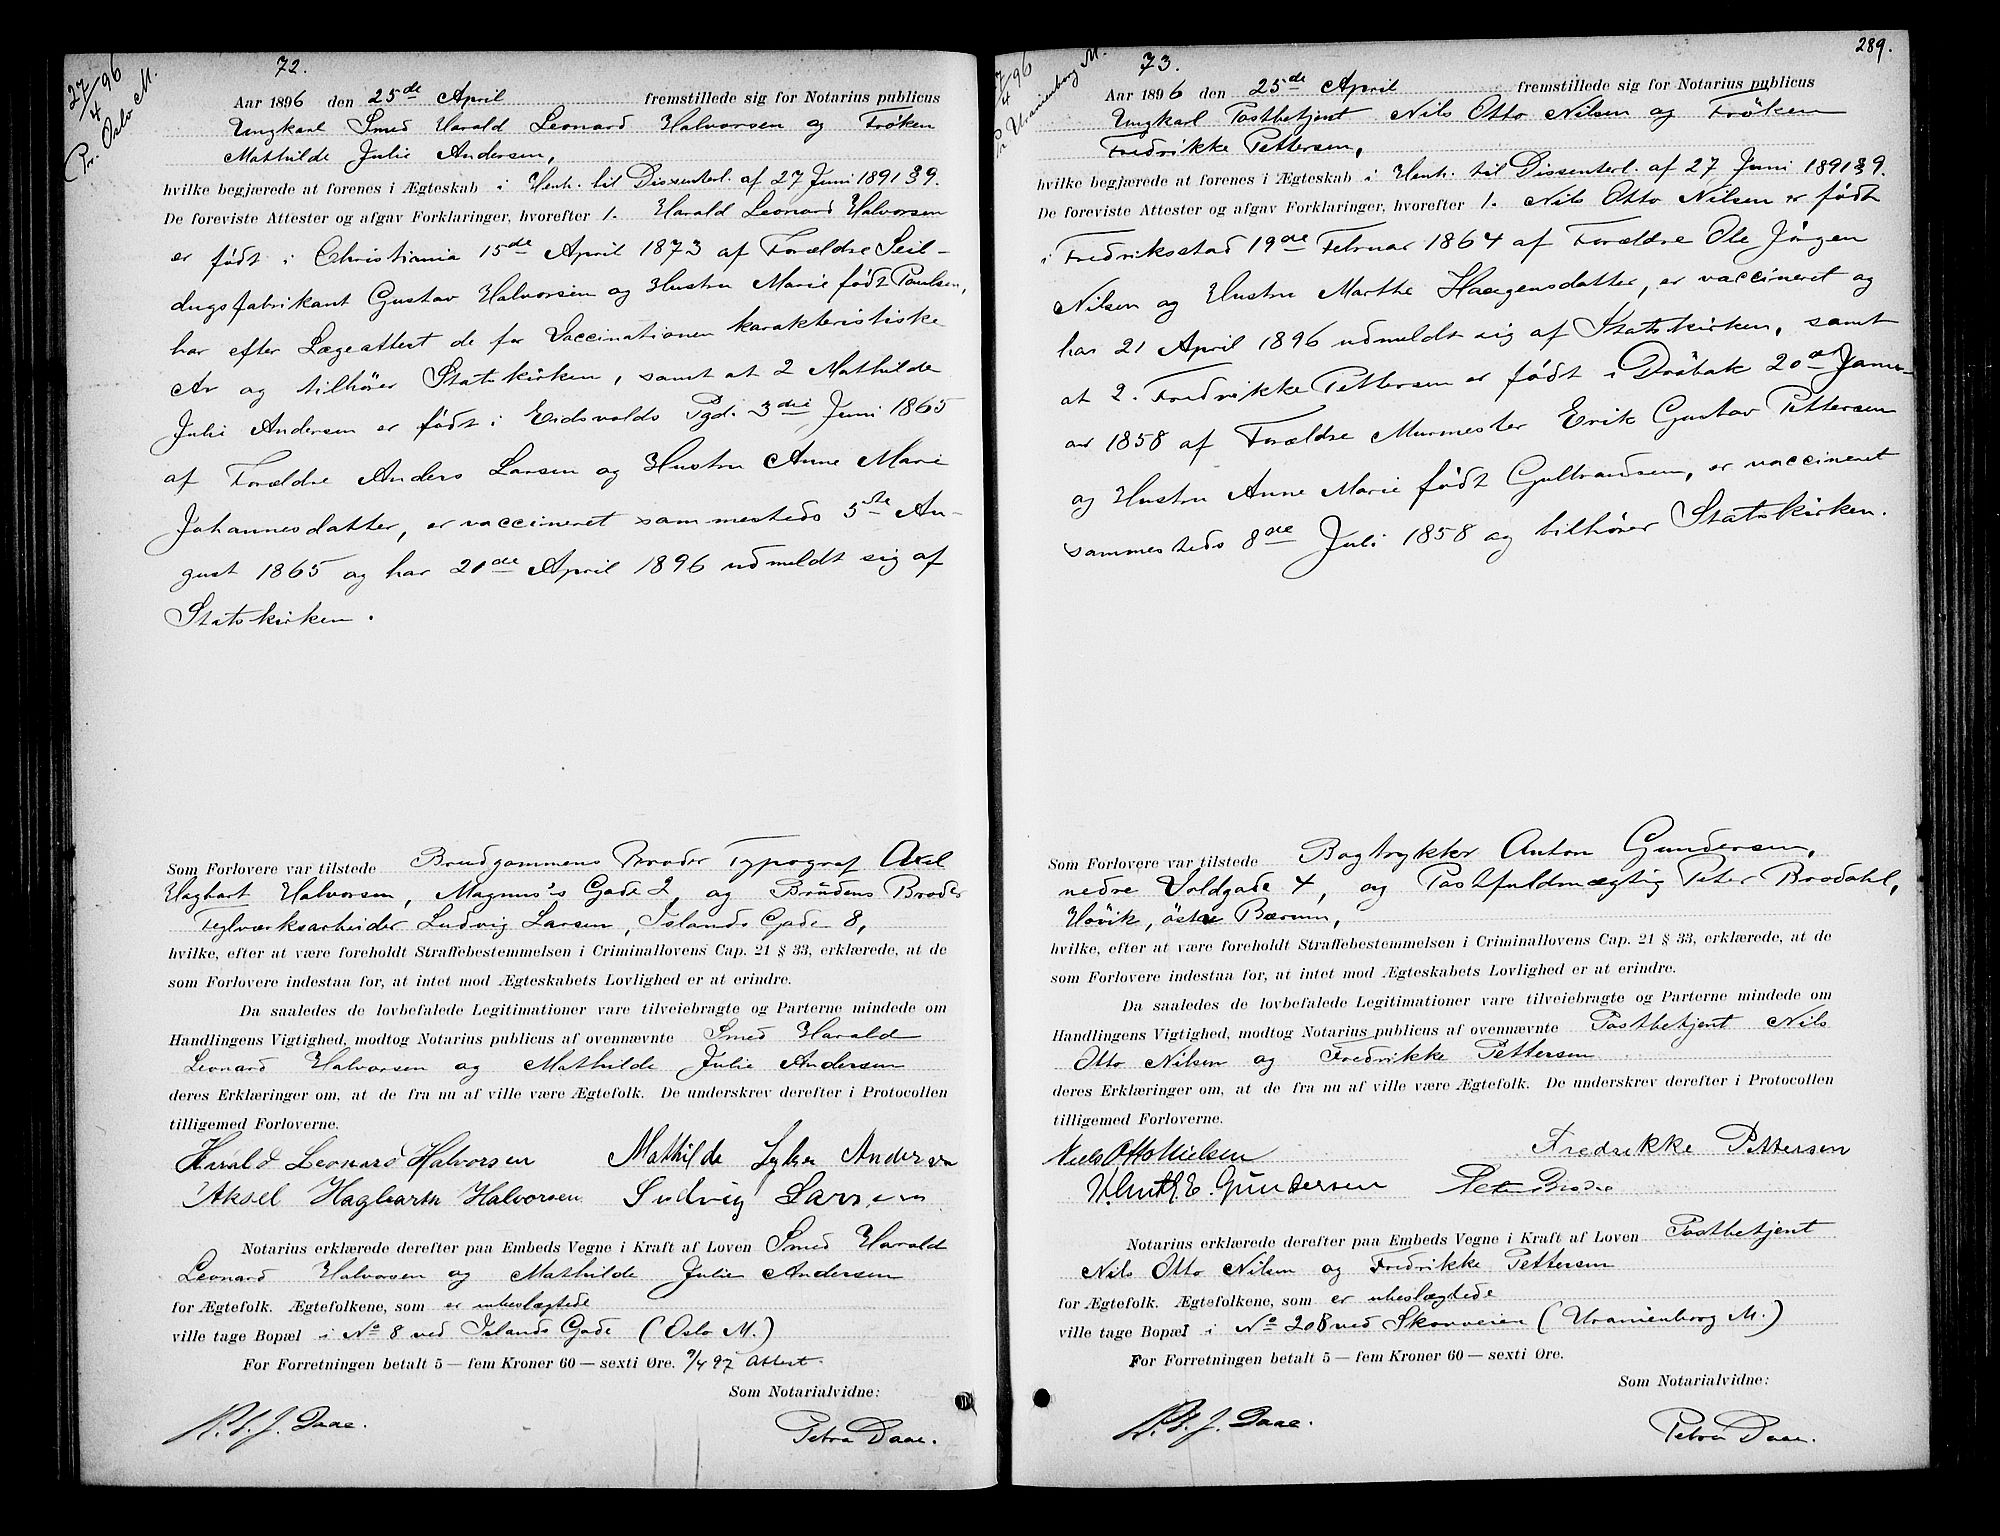 27/4 96
Pr. Oslo M.
72.
Aar 1896 den 25de April fremstillede sig for Notarius publicus
Ungkarl Smed Harald Leonard Halvorsen og Frøken
Mathilde Julie Andersen,
hvilke begjærede at forenes i Ægteskab i Henh. til Dissenterl. af 27 Juni 1891 § 9.
De foreviste Attester og afgav Forklaringer, hvorefter 1. Harald Leonard Halvorsen
er født i Christiania 15de April 1873 af Forældre Seil-
dugsfabrikant Gustav Halvorsen og Hustru Marie født Paulsen,
har efter Lægeattest de for Vaccinationen karakteristiske
Ar og tilhører Statskirken, samt at 2 Mathilde
Julie Andersen er født i Eidsvolds Pgd. 3die Juni 1865
af Forældre Anders Larsen og Hustru Anne Marie
Johannesdatter, er vaccineret sammesteds 5te Au-
gust 1865 og har 21de April 1896 udmeldt sig af
Statskirken.
Som Forlovere var tilstede Brudgommens Broder Typograf Axel
Hagbart Halvorsen, Magnus's Gade 2, og Brudens Broder
Teglværksarbeider Ludvig Larsen, Islands Gade 8,
hvilke, efter at være foreholdt Straffebestemmelsen i Criminallovens Cap. 21 § 33, erklærede, at de
som Forlovere indestaa for, at intet mod Ægteskabets Lovlighed er at erindre.
Da saaledes de lovbefalede Legitimationer vare tilveiebragte og Parterne mindede om
Handlingens Vigtighed, modtog Notarius publicus af ovennævnte Smed Harald
Leonard Halvorsen og Mathilde Julie Andersen
deres Erklæringer om, at de fra nu af ville være Ægtefolk. De underskrev derefter i Protocollen
tilligemed Forloverne.
Harald Leonard Halvorsen Mathilde Andersen
Aksel Hagbarth Halvorsen Ludvig Larsen
Notarius erklærede derefter paa Embeds Vegne i Kraft af Loven Smed Harald
Leonard Halvorsen og Mathilde Julie Andersen
for Ægtefolk. Ægtefolkene, som er ubeslægtede
ville tage Bopæl i No 8 ved Islands Gade (Oslo M.)
For Forretningen betalt 5 — fem Kroner 60 — sexti Øre. 9/4 97 Attest.
Som Notarialvidne:
Daae.
Petra Daae.
289.
Uranienborg M.
73.
Aar 1896 den 25de April fremstillede sig for Notarius publicus
Ungkarl Postbetjent Nils Otto Nilsen og Frøken
Fredrikke Pettersen,
hvilke begjærede at forenes i Ægteskab i Henh. til Dissenterl. af 27 Juni 1891 § 9.
De foreviste Attester og afgav Forklaringer, hvorefter 1. Nils Otto Nilsen er født
i Fredriksstad 19de Februar 1864 af Forældre Ole Jörgen
Nilsen og Hustru Marthe Haagensdatter, er vaccineret og
har 21 April 1896 udmeldt sig af Statskirken, samt
at 2. Fredrikke Pettersen er født i Dröbak 20de Janu-
ar 1858 af Forældre Murmester Erik Gustav Pettersen
og Hustru Anne Marie født Gulbrandsen, er vaccineret
sammesteds 8de Juli 1858 og tilhører Statskirken.
Som Forlovere var tilstede Bogtrykker Anton Gundersen,
nedre Voldgade 4, og Postfuldmægtig Peter Brodahl,
Hövik, östre Bærum,
hvilke, efter at være foreholdt Straffebestemmelsen i Criminallovens Cap. 21 § 33, erklærede, at de
som Forlovere indestaa for, at intet mod Ægteskabets Lovlighed er at erindre.
Da saaledes de lovbefalede Legitimationer vare tilveiebragte og Parterne mindede om
Handlingens Vigtighed, modtog Notarius publicus af ovennævnte Postbetjent Nils
Otto Nilsen og Fredrikke Pettersen
deres Erklæringer om, at de fra nu af ville være Ægtefolk. De underskrev derefter i Protocollen
tilligemed Forloverne.
Niels Otto Nielsen Fredrikke Pettersen
E. Gundersen
Notarius erklærede derefter paa Embeds Vegne i Kraft af Loven Postbetjent
Nils Otto Nilsen og Fredrikke Pettersen
for Ægtefolk. Ægtefolkene, som er ubeslægtede
ville tage Bopæl i No 20B ved Skovveien (Uranienborg M.)
For Forretningen betalt 5 — fem Kroner 60 — sexti Øre.
Som Notarialvidne:
Daae.
Petra Daae.